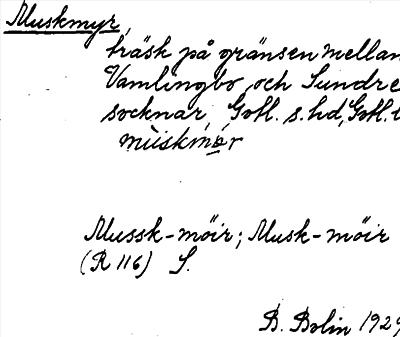 Muskmyr,
träsk på gränsen mellan
Vamlingbo och Sundre
socknar, Gotl. s. hd, Gotl. l
Mussk-möir; Musk-möir
(R 116) S.
B. Bolin 1929